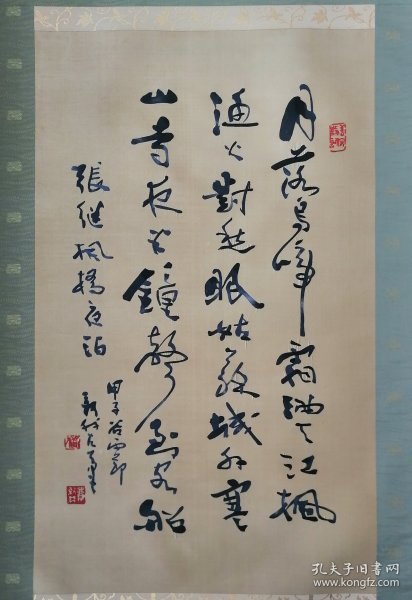 月落烏啼霜滿天江楓
漁火對愁眠姑蘇城外寒
山寺夜半鐘聲到客船
張継楓橋夜泊
甲子谷雨節
孔夫子旧书网